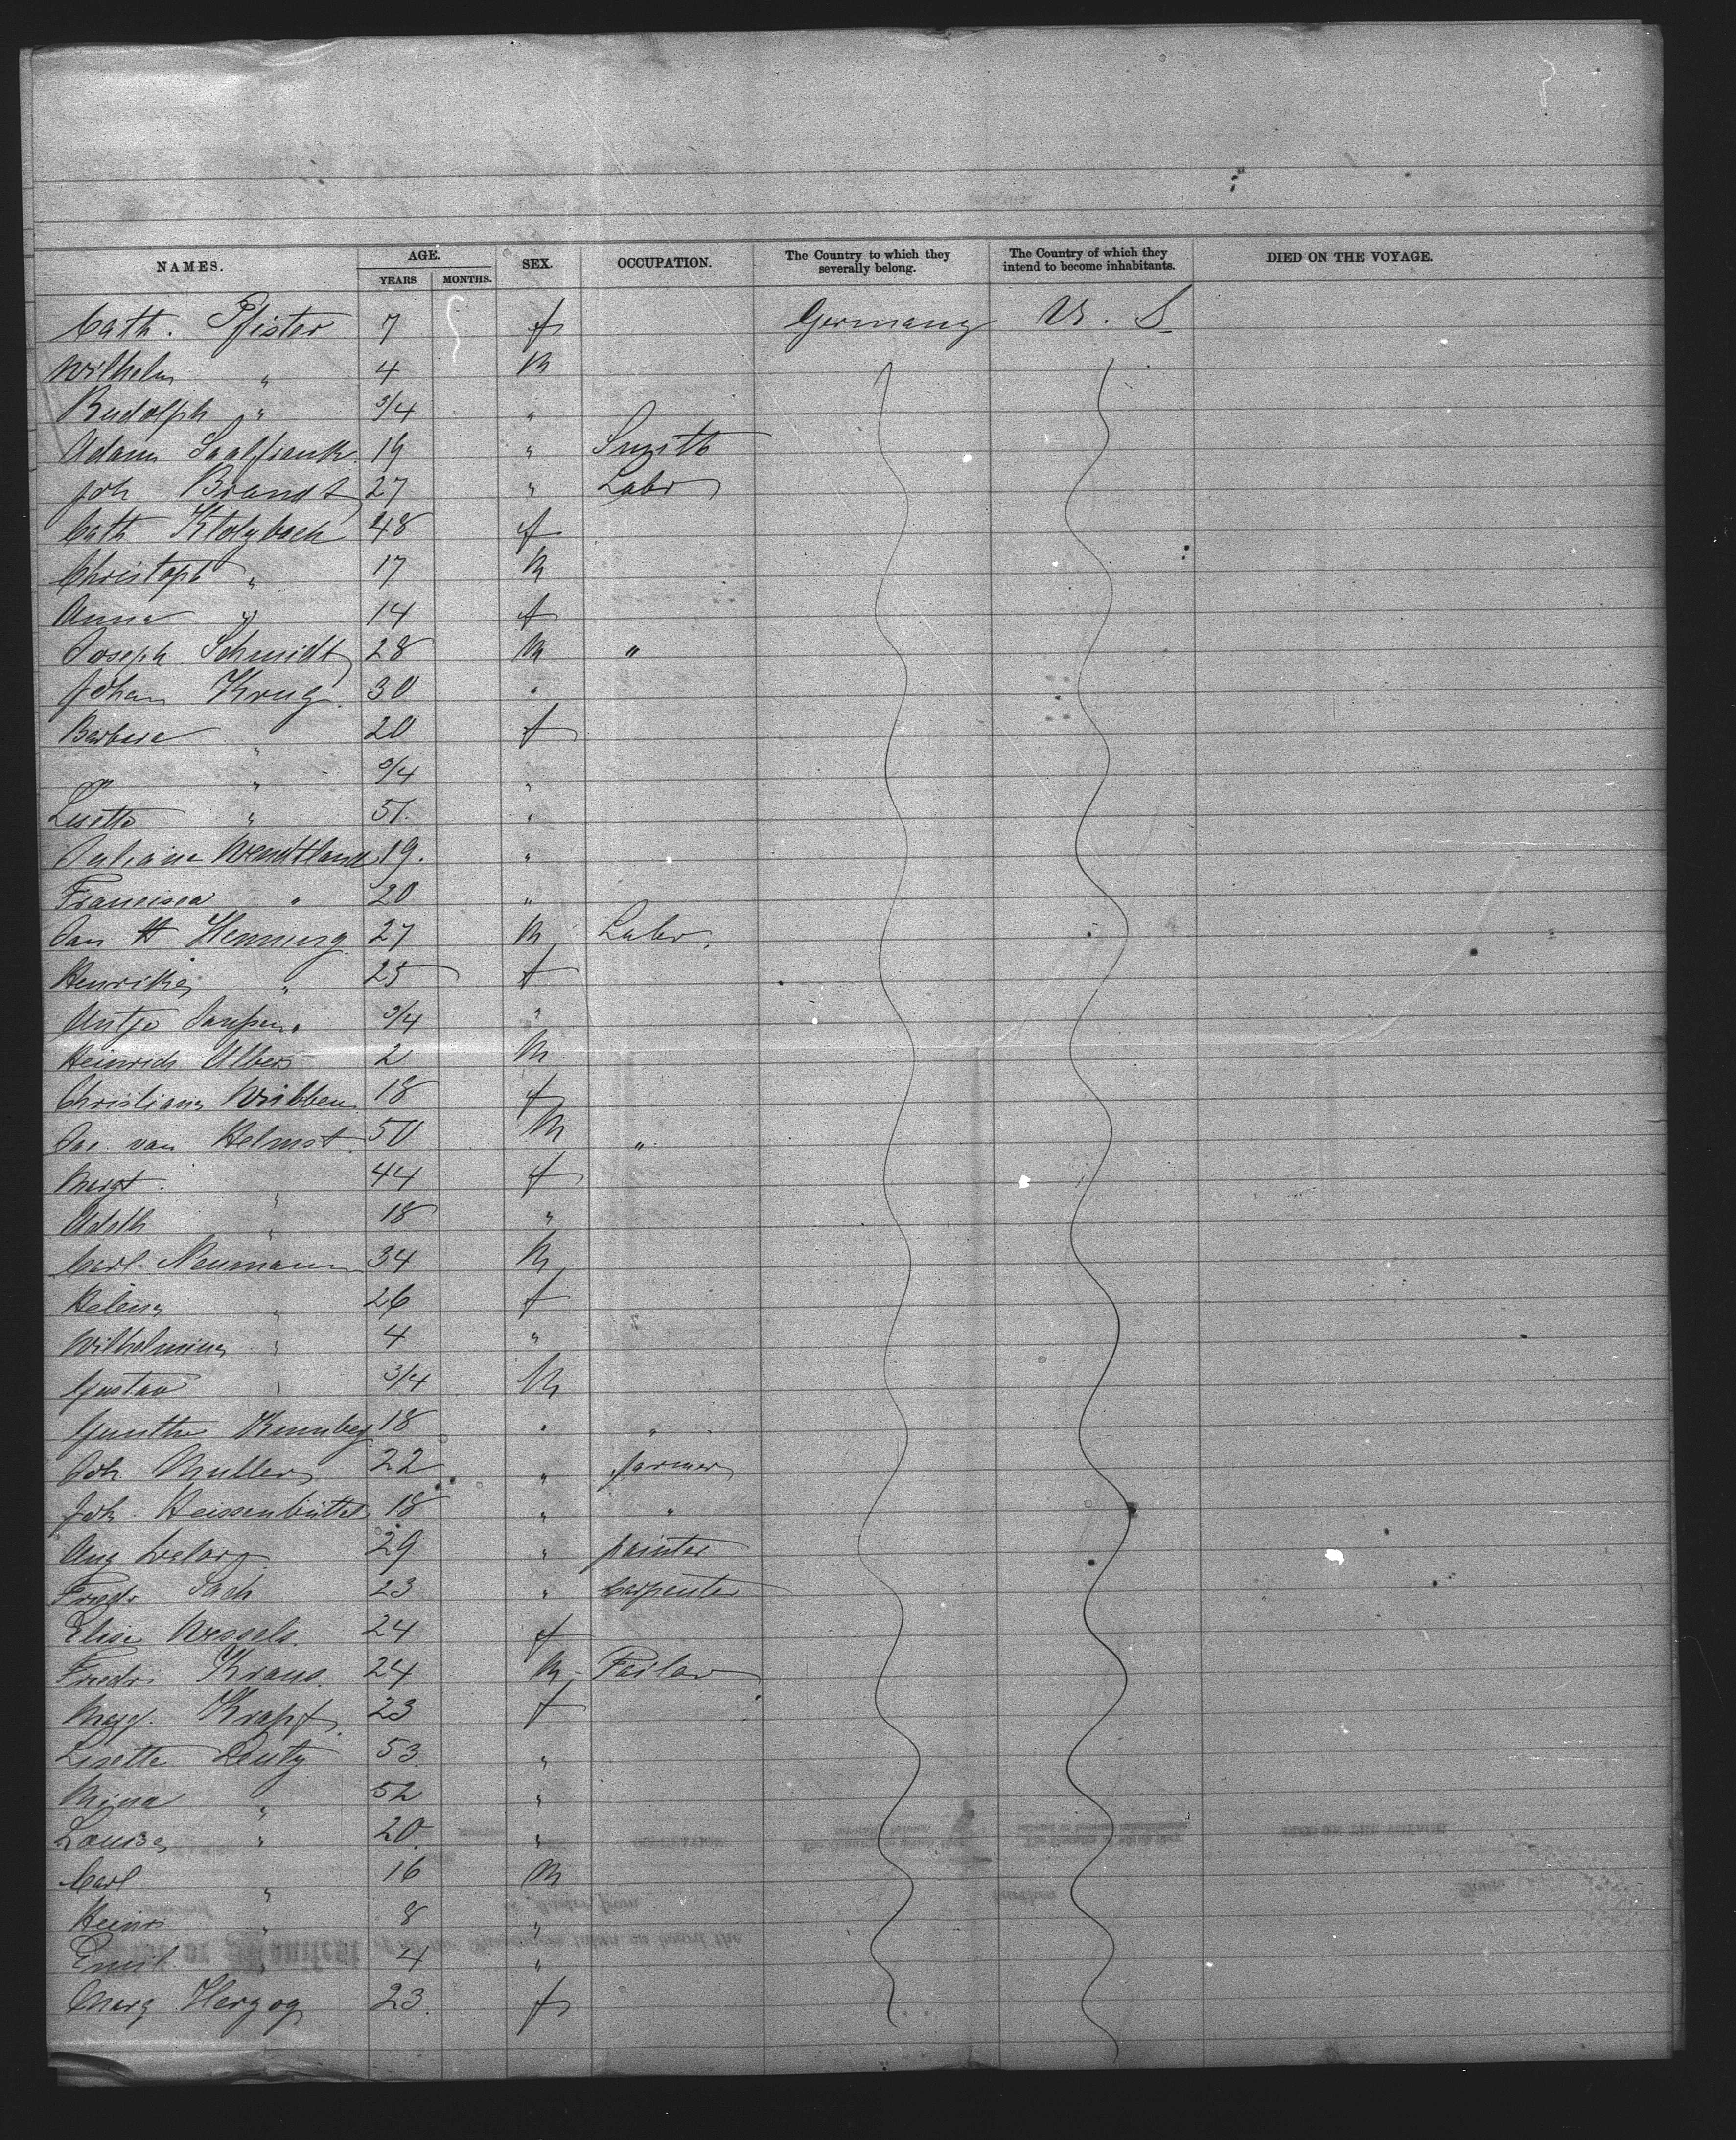 NAMES. AGE. SEX. OCCUPATION. The Country to which they severally belong. The Country of which they intend to become inhabitants. DIED ON THE VOYAGE.
YEARS MONTHS.
Cath. Pfister 7 f Germany U. S
Wilhelm " 4 M
Rudolph " 3/4 "
Adam Saalfrank 19 " Smith
Joh Brandt 27 " Labr
Cath Klotzbach 48 f
Christoph " 17 M
Anna " 14 f
Joseph Schmidt 28 M "
Johan Krug 30 "
Barbara " 20 f
" 3/4 "
Lisette " 51. "
Juliane Wendtland 19. "
Francisca " 20 "
Jan H Henning 27 M Labr.
Henrike " 25 f
Antje Janssen 3/4 "
Heinrich Albers 2 M
Christiane Wibben 18 f
Joe. van Helmst 50 M "
Margt. " 44 f
Adelh " 18 "
Carl Neumann 34 M
Helena " 26 f
Wilhelmina " 4 "
Gustav " 3/4 M
Gunther 18 " "
Joh Muller 22 " farmer
Joh. Heissenbüttel 18 " "
Aug 29 " painter
Friedr Sach 23 " Carpenter
Elise Wessels. 24 f
Friedr Kraus. 24 M Tailor
Marg. Krapf 23 f
Lisette Deutz 53. "
Mina " 52 "
Louise " 20. "
Carl " 16 M
Heinr " 8 "
Emil " 4 "
Marg Herzog 23. f